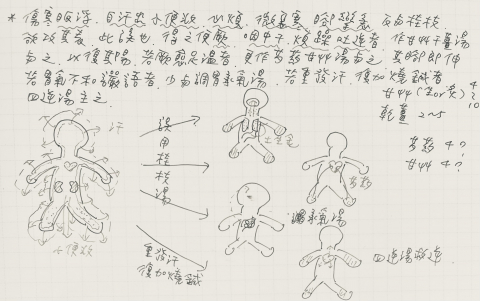 * 傷寒脈浮 自汗出 小便數 心煩 微惡寒 腳攣急 反與桂枝
欲攻其表 此誤也 得之便厥 咽中干 煩躁 吐逆者 作甘艸干薑湯
與之 以復其陽 若厥愈足溫者 更作芍藥甘艸湯與之 其腳即伸
若胃氣不和譫語者 少與調胃承氣湯 若重發汗 復加燒鍼者
四逆湯主之
甘艸 4
乾薑 2~5
芍藥 4?
甘艸 4?
汗
小便數
誤
用
桂
枝
湯
重發汗
復加燒鍼
芍藥
調胃承氣湯
四逆湯